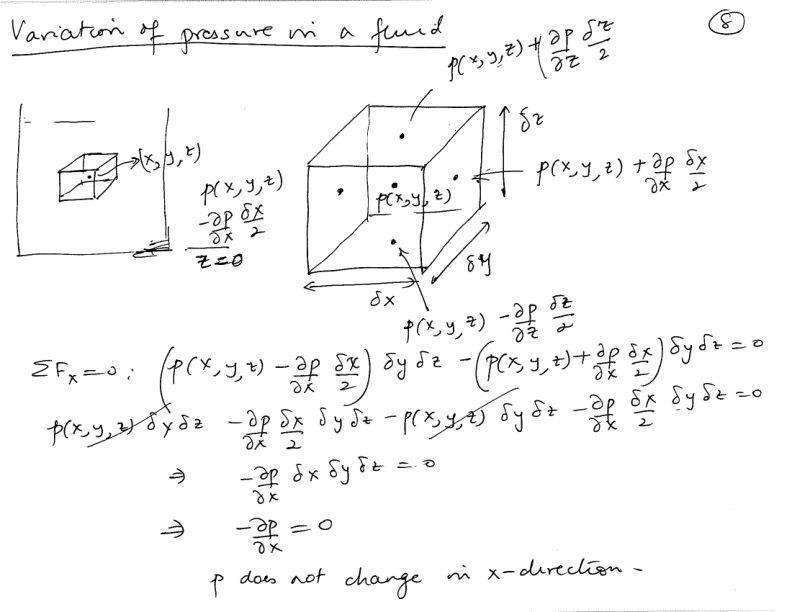 Variation of pressure in a fluid
8
p(x,y,z) + ∂p/∂z δz/2
(x,y,z)
z=0
p(x,y,z) - ∂p/∂x δx/2
p(x,y,z)
δz
p(x,y,z) + ∂p/∂x δx/2
δy
δx
p(x,y,z) - ∂p/∂z δz/2
ΣFx=0: (p(x,y,z) - ∂p/∂x δx/2) δy δz - (p(x,y,z) + ∂p/∂x δx/2) δy δz = 0
p(x,y,z) δy δz - ∂p/∂x δx/2 δy δz - p(x,y,z) δy δz - ∂p/∂x δx/2 δy δz = 0
⇒ -∂p/∂x δx δy δz = 0
⇒ -∂p/∂x = 0
p does not change in x-direction -